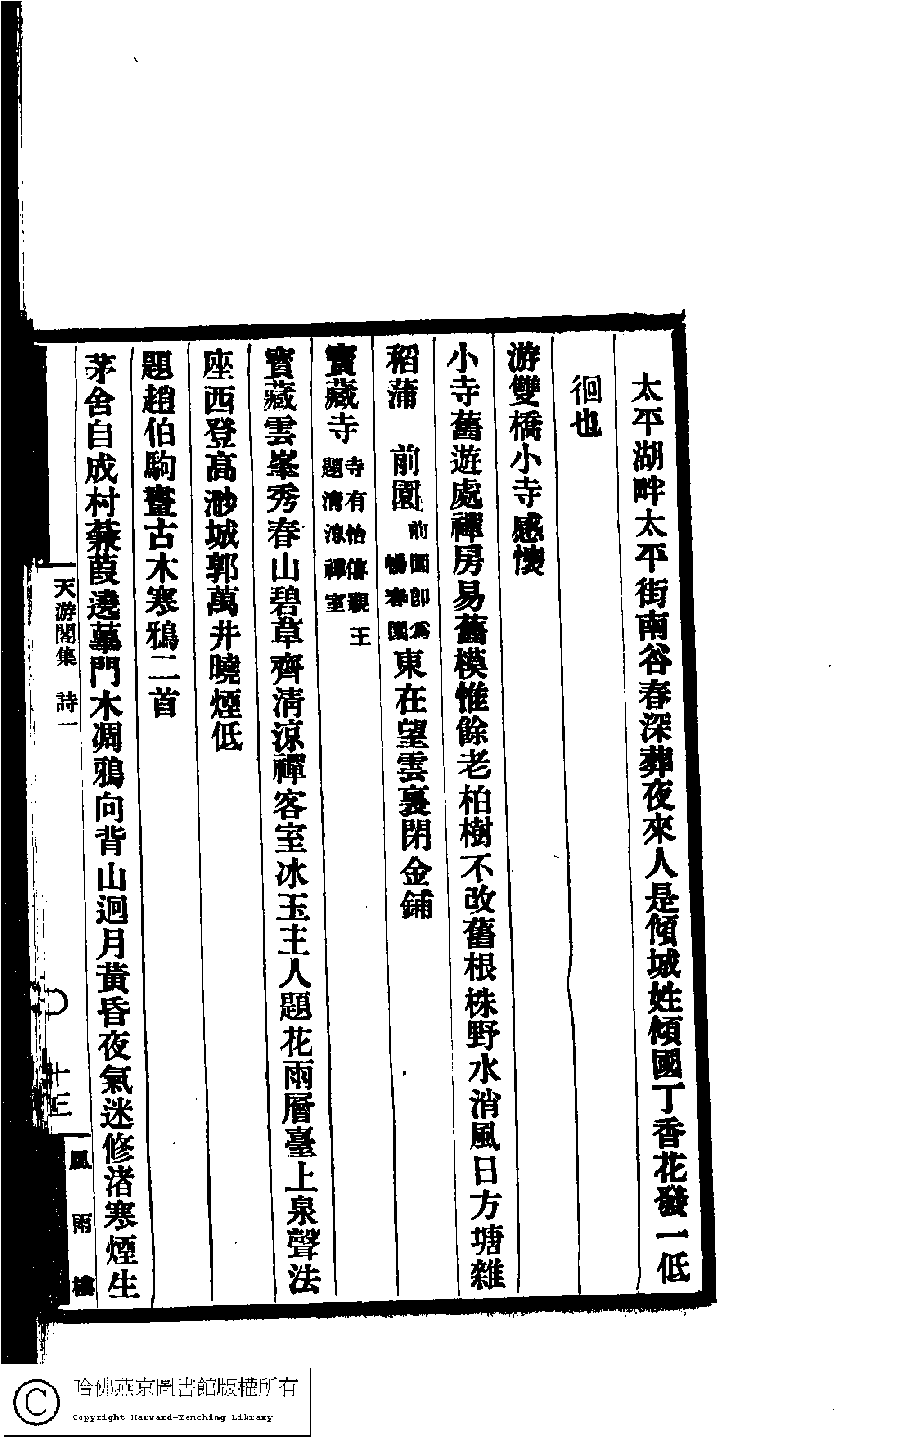 太平湖畔太平街南谷春深葬夜來人是傾城姓傾國丁香花發一低
徊也
游雙橋小寺感懷
小寺舊遊處禪房易舊模惟餘老柏樹不改舊根株野水消風日方塘雜
稻蒲前園前園卽爲暢春園東在望雲裏閉金鋪
寶藏寺寺有怡僖親王題清涼禪室
寶藏雲峯秀春山碧草齊清涼禪客室冰玉主人題花雨層臺上泉聲法
座西登高渺城郭萬井曉煙低
題趙伯駒畫古木寒鴉二首
茅舍自成村蒹葭遶墓門木凋鴉向背山迥月黃昏夜氣迷修渚寒煙生
天游閣集 詩一
十三
風雨樓
哈佛燕京圖書館版權所有
Copyright Harvard-Yenching Library